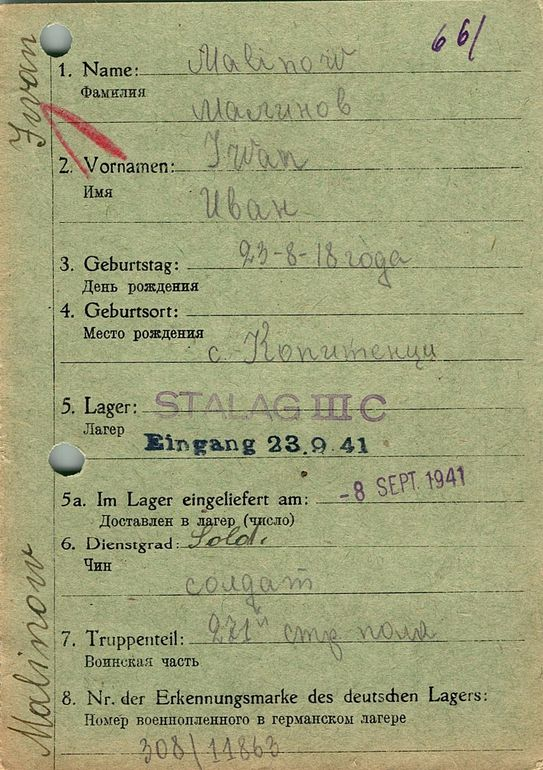 66/
1. Name: Malinow
Фамилия
Малинов
2. Vornamen: Iwan
Имя
Иван
3. Geburtstag: 23-8-18 года
День рождения
4. Geburtsort:
Место рождения
с. Копитенци
5. Lager: STALAG III C
Лагер
Eingang 23.9.41
5a. Im Lager eingeliefert am: -8 SEPT. 1941
Доставлен в лагер (число)
6. Dienstgrad: Sold.
Чин
солдат
7. Truppenteil: 271й стр полк
Воинская часть
8. Nr. der Erkennungsmarke des deutschen Lagers:
Номер военнопленного в германском лагере
308/11863
Malinow Iwan